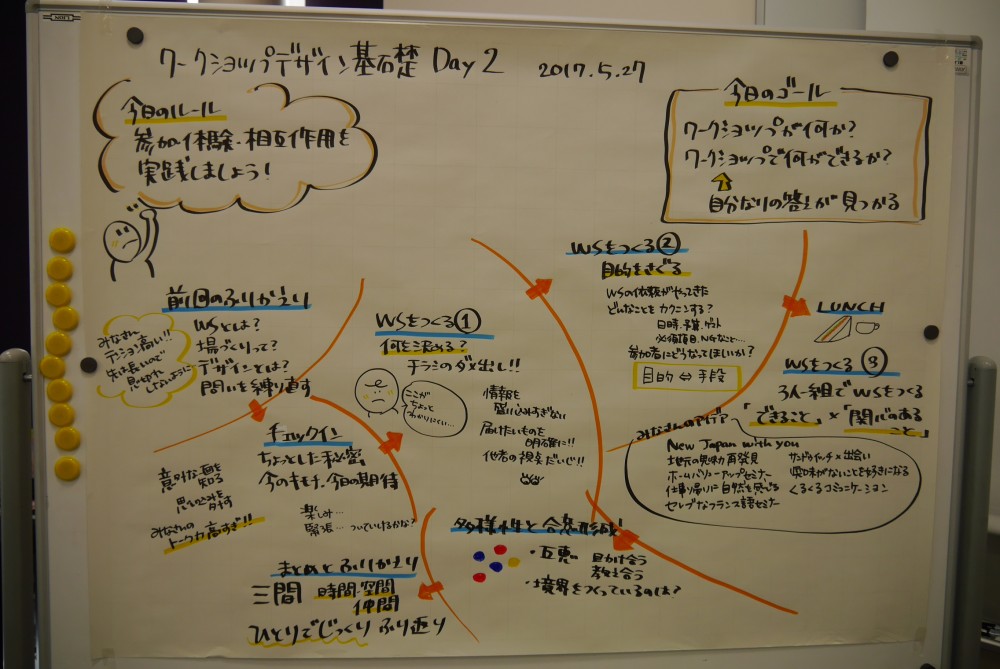 ワークショップデザイン基礎 Day 2 2017.5.27
今日のルール
参加・体験・相互作用を
実践しましょう！
今日のゴール
ワークショップが何か？
ワークショップで何ができるか？
自分なりの答えが見つかる
前回のふりかえり
WSとは？
場づくりって？
デザインとは？
問いを練り直す
みなさん
テンション高い!!
先は長いので
しないように
チェックイン
ちょっとした秘密
今のキモチ、今日の期待
楽しみ…
緊張… ついていけるかな？
意外な一面を
知る
思い込みを
外す
みなさんの
トーク力高すぎ!!
WSをつくる①
何を決める？
チラミのダメ出し!!
ここが
ちょっと
わかりにくい…
情報を
盛り込みすぎない
届けたいものを
明確に!!
他者の視点だいじ!!
WSをつくる②
目的をさぐる
WSの依頼がやってきた
どんなことをカクニンする？
日時・予算・ゲスト
必須項目、NGなこと…
参加者にどうなってほしいか？
目的 ⇔ 手段
LUNCH
WSをつくる③
3人一組でWSをつくる
「できること」×「関心のある
こと」
みなさんのアイデア
New Japan with you
地元の魅力再発見
ホームパーティーアップセミナー
仕事帰りに自然を感じる
セレブなフランス語セミナー
サンドイッチ×出会い
興味がないことを好きになる
くるくるコミュニケーション
多様性と合意形成
・互恵 助け合う
教え合う
・境界をつくっているのは？
まとめとふりかえり
三間 時間・空間
仲間
ひとりでじっくりふり返り